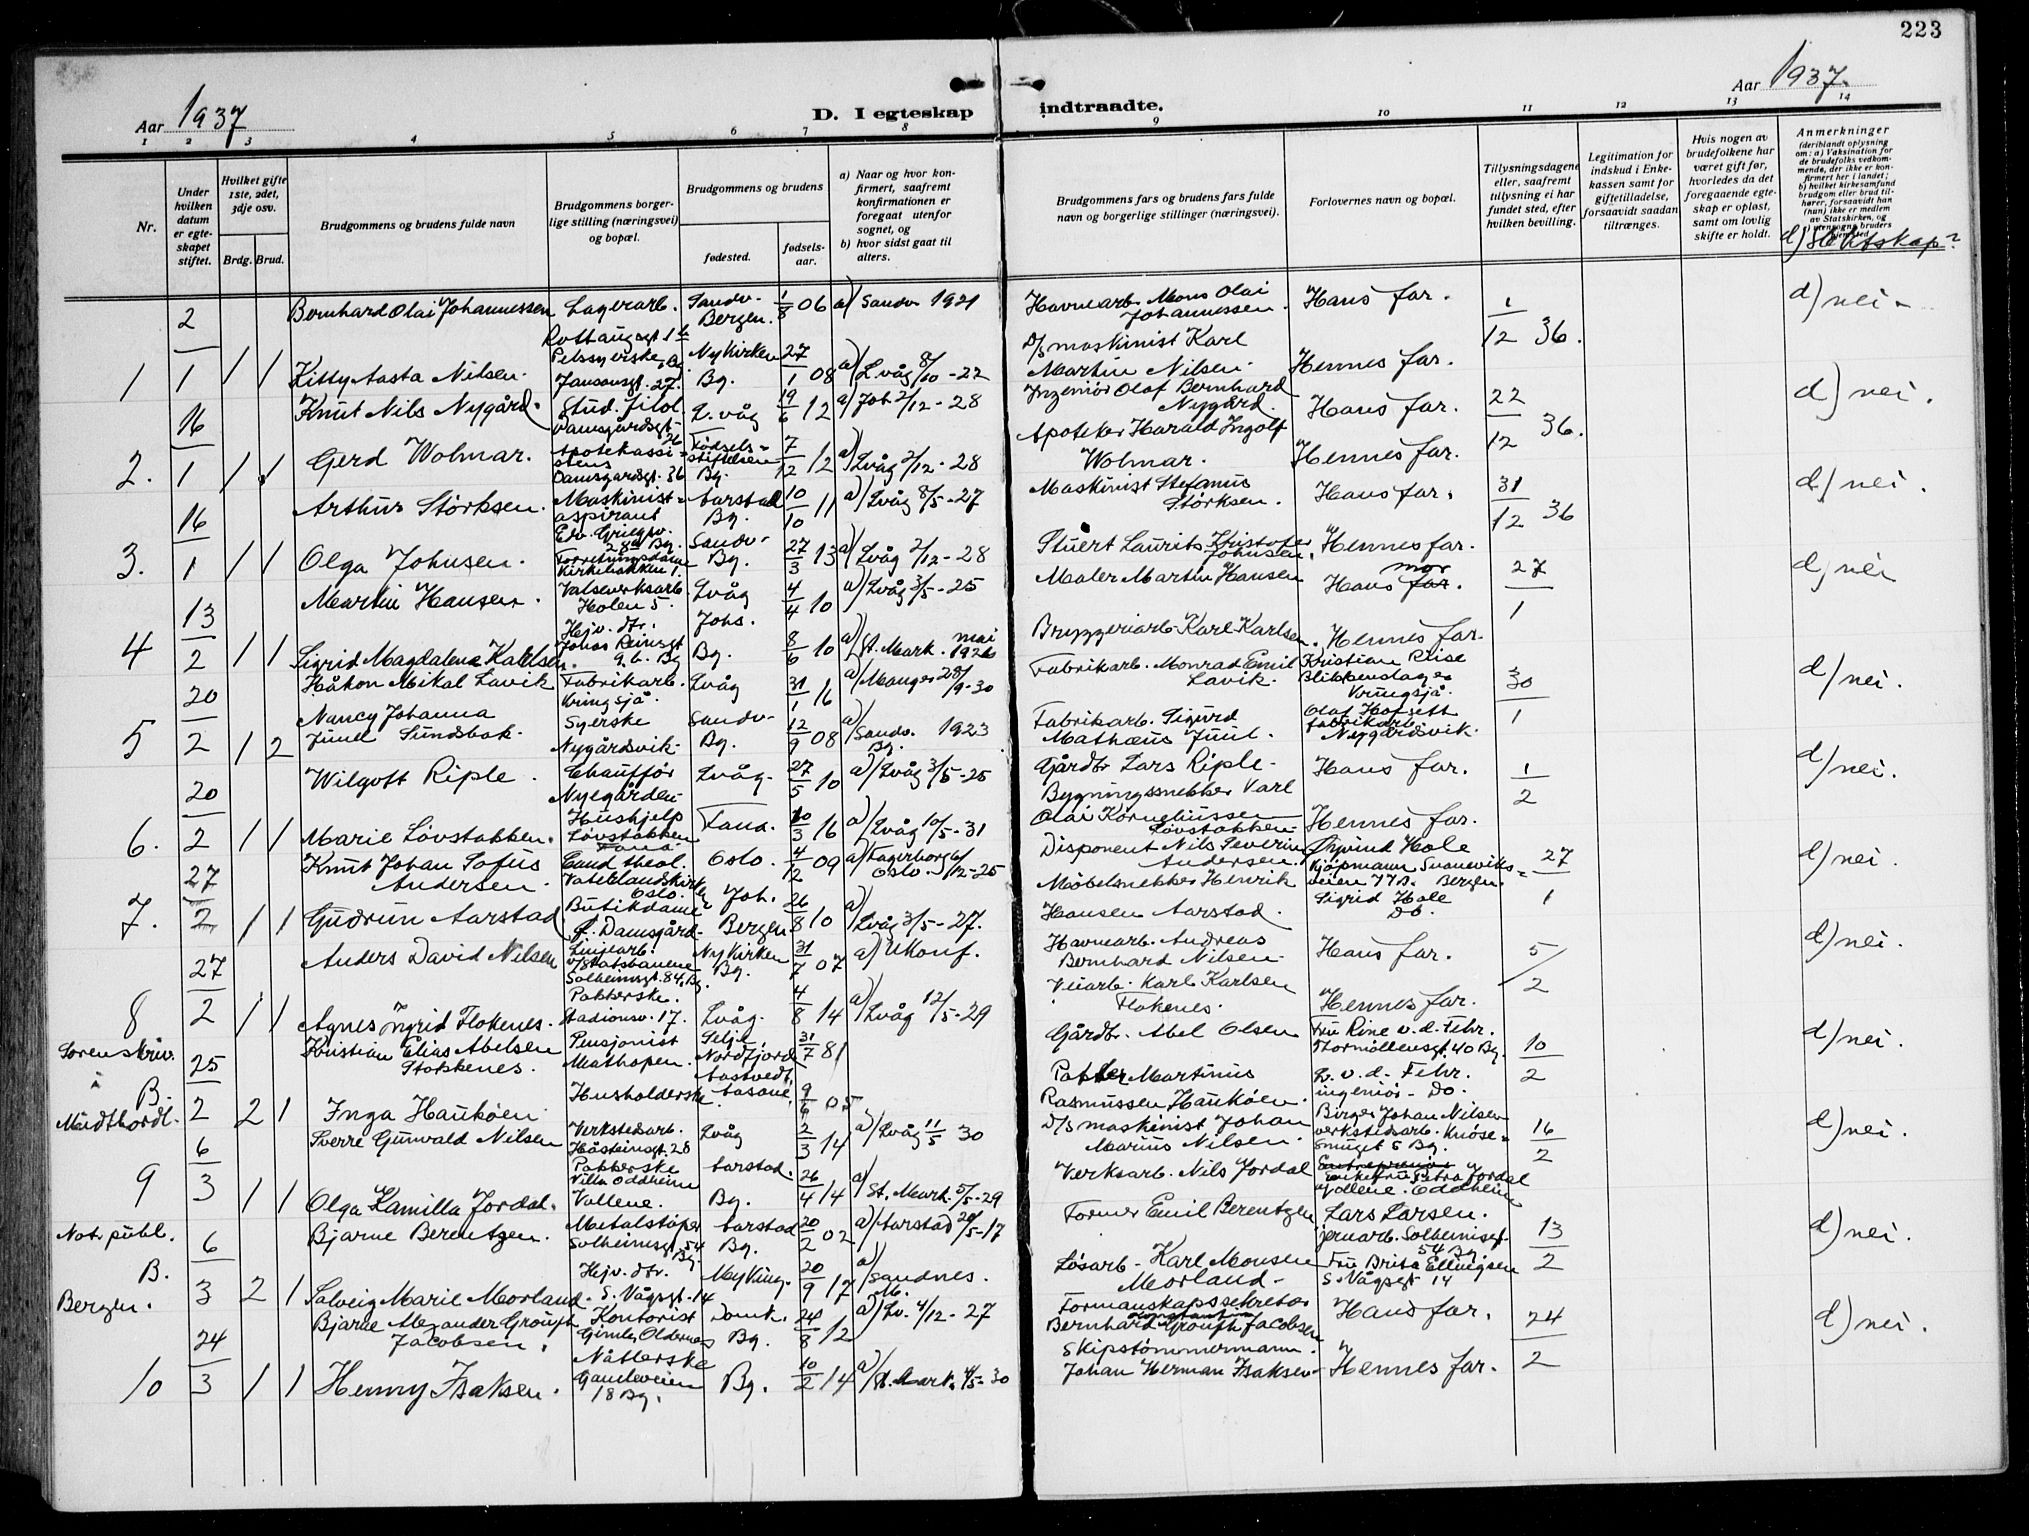 223
Aar 1937
D. I egteskap indtraadte.
Aar 1937.
1 2 3 4 5 6 7 8 9 10 11 12 13 14
Nr.
Under hvilken datum er egteskapet stiftet.
Hvilket gifte 1ste, 2det, 3dje osv.
Brdg. Brud.
Brudgommens og brudens fulde navn
Brudgommens borgerlige stilling (næringsvei) og bopæl.
Brudgommens og brudens
fødested.
fødselsaar.
a) Naar og hvor konfirmert, saafremt konfirmationen er foregaat utenfor sognet, og
b) hvor sidst gaat til alters.
Brudgommens fars og brudens fars fulde navn og borgerlige stillinger (næringsvei).
Forlovernes navn og bopæl.
Tillysningsdagene eller, saafremt tillysning ei har fundet sted, efter hvilken bevilling.
Legitimation for indskud i Enkekassen samt for giftetilladelse, forsaavidt saadan tiltrænges.
Hvis nogen av brudefolkene har været gift før, hvorledes da det foregaaende egteskap er opløst, samt om lovlig skifte er holdt.
Anmerkninger
(deriblandt oplysning om: a) Vaksination for de brudefolks vedkommende, der ikke er konfirmert her i landet; b) hvilket kirkesamfund brudgom eller brud tilhører, forsaavidt han (hun) ikke er medlem av Statskirken, og
d) slektskap?
2/1 Bernhard Olai Johannessen Lagerarb. Sandv. Bergen. 1/8 06 a) Sandv 1921 Havnearb. Mons Olai Johannessen. Hans far. 1/12 36. d) nei.
1 1 1 Kitty Aasta Nilsen. Pelssyerske Jansonsgt. 27. Nykirken Bg. 27/1 08 a) Lvåg 8/10-22 D/S maskinist Karl Martin Nilsen. Hennes far.
16/1 Knut Nils Nygård. Stud. filol. Damsgårdsgt. L.våg 19/6 12 a) Joh. 2/12-28 Ingeniør Olaf Bernhard Nygård. Hans far. 22/12 36. d) nei.
2. 1 1 Gerd Wolmar. Apotekassistens Damsgårdsgt. 36 Fødselsstiftelsen Bg. 7/12 12 a) Lvåg 2/12-28 Apoteker Harald Ingolf Wolmar. Hennes far.
16/1 Arthur Störksen. Maskinistaspirant Edv. Griegsv. 28 Bg. Aarstad Bg. 10/10 11 a) Lvåg 8/5-27 Maskinist Stefanus Störksen. Hans far. 31/12 36 d) nei.
3. 1 1 Olga Johnsen. Forretningsdame Kirkebakken 1. Sandv. Bg. 27/3 13 a) Lvåg 2/12-28 Stuert Laurits Kristofer Johnsen. Hennes far.
13/2 Martin Hansen. Valseverksarb. Holen 5. Lvåg 4/4 10 a) Lvåg 3/5-25 Maler Martin Hansen Hans far. mor 27/1 d) nei
4 1 1 Sigrid Magdalene Karlsen. Hejv. dtr. Johs. Bg. 8/6 10 a) St. Mark. mai 1926 Bryggeriarb. Karl Karlsen. Hennes far.
20/2 Håkon Mikal Lavik Fabrikarb. Kringsjå. Lvåg 31/1 16 a) Manger 28/9-30 Fabrikarb. Monrad Emil Lavik. Kristian Riise Blikkenslager Kringsjå 30/1 d) nei.
5 1 2 Nancy Johanna Juul Sundsbak. Syerske Nygårdsvik. Sandv. Bg. 12/9 08 a) Sandv. Bg. 1923 Fabrikarb. Sigurd Mathæus Juul. Olaf Hopsett fabrikarb. Nygårdsvik.
20/2 Wilgott Riple. Chauffør Nyegården Lvåg. 27/5 10 a) Lvåg 3/5-25 Gårdbr. Lars Riple. Hans far. 1/2 d) nei.
6. 1 1 Marie Lövstakken. Hushjelp Lövstakken Fana. Fana. 10/3 16 a) Lvåg 10/5-31 Bygningssnekker Karl Olai Korneliussen Lövstakken Hennes far.
27/2 Knut Johan Sofus Andersen. Cand. theol. Vaterlandskirke Oslo. Oslo. 4/2 09 a) Fagerborg Oslo. 6/12-25 Disponent Nils Severin Andersen. Öyvind Hole Kjöpmann Svaneviksveien 77B. Bergen. 27/1 d) nei.
7. 1 1 Gudrun Aarstad Butikdame f. Damsgård. Joh. Bergen. 26/8 10 a) Lvåg 3/5-27. Möbelsnekker Henrik Hansen Aarstad. Sigrid Hole Do.
27/2 Anders David Nilsen Linjearb. v/Statsbanene Solheimsgt. 84, Bg. Nykirken Bg. 31/7 07 a) Ukonf. Havnearb. Andreas Bernhard Nilsen. Hans far. 5/2 d) nei.
8 1 1 Agnes Ingrid Flokenes. Pakkerske. Stadionsv. 17. Lvåg. 4/8 14 a) Lvåg 12/5-29 Veiarb. Karl Karlsen Flokenes. Hennes far.
Sorenskriv. i B. Midthordl. 25/2 Kristian Elias Abelsen Stokkenes. Pensjonist Mathopen. Selje Nordfjord 31/7 81 Gårdbr. Abel Olsen Fru Rine v.d. Fehr. Thormöllensgt. 40 Bg. 10/2 d) nei.
2 1 Inga Hauköen. Husholderske. 9/6 05 Pakker Martinus Rasmussen Hauköen. v. d. Fehr. ingeniör. Do.
6/3 Sverre Gunvald Nilsen Verkstedsarb. Håsteinsgt. 28 Lvåg 2/3 14 a) Lvåg 11/5 30 D/S maskinist Johan Marius Nilsen. Birger Johan Nilsen verkstedsarb. Knösesmuget 5 Bg. 16/2 d) nei.
9 1 1 Olga Kamilla Jordal. Pakkerske Villa Oddheim Vallene. Aarstad. Bg. 26/4 14 a) St. Mark. 5/5-29 Verksarb. Nils Jordal Enkefru Petra Jordal Vallene. Oddheim
Not. publ. B. Bergen. 6/3 Bjarne Berentzen. Metalstöper Solheimsgt. 54 Bg. Aarstad Bg. 20/2 02 a) Aarstad 20/5-17 Former Emil Berentzen Lars Larsen. jernarb. Solheimsgt. 54 Bg. 13/2 d) nei.
2 1 Solveig Marie Morland. Hejv. dtr. S. Vågsgt. 14 20/9 17 a) Sandnes. M. Lösarb. Karl Monsen Morland. Fru Brita Ellingsen S. Vågsgt 14
24/3 Bjarne Alexander Grouffh Jacobsen. Kontorist Gimle, Oldernes Domk. Bg. 24/8 12 a) Lv. 4/12-27 Formannskapssekretær Bernhard Grouffh Jacobsen Hans far. 24/2 d) nei.
10 1 1 Henny Isaksen. Nåtlerske Gamleveien 18 Bg. Bg. 10/2 14 a) St. Mark. 4/5-30 Skipstömmermann. Johan Herman Isaksen. Hennes far.